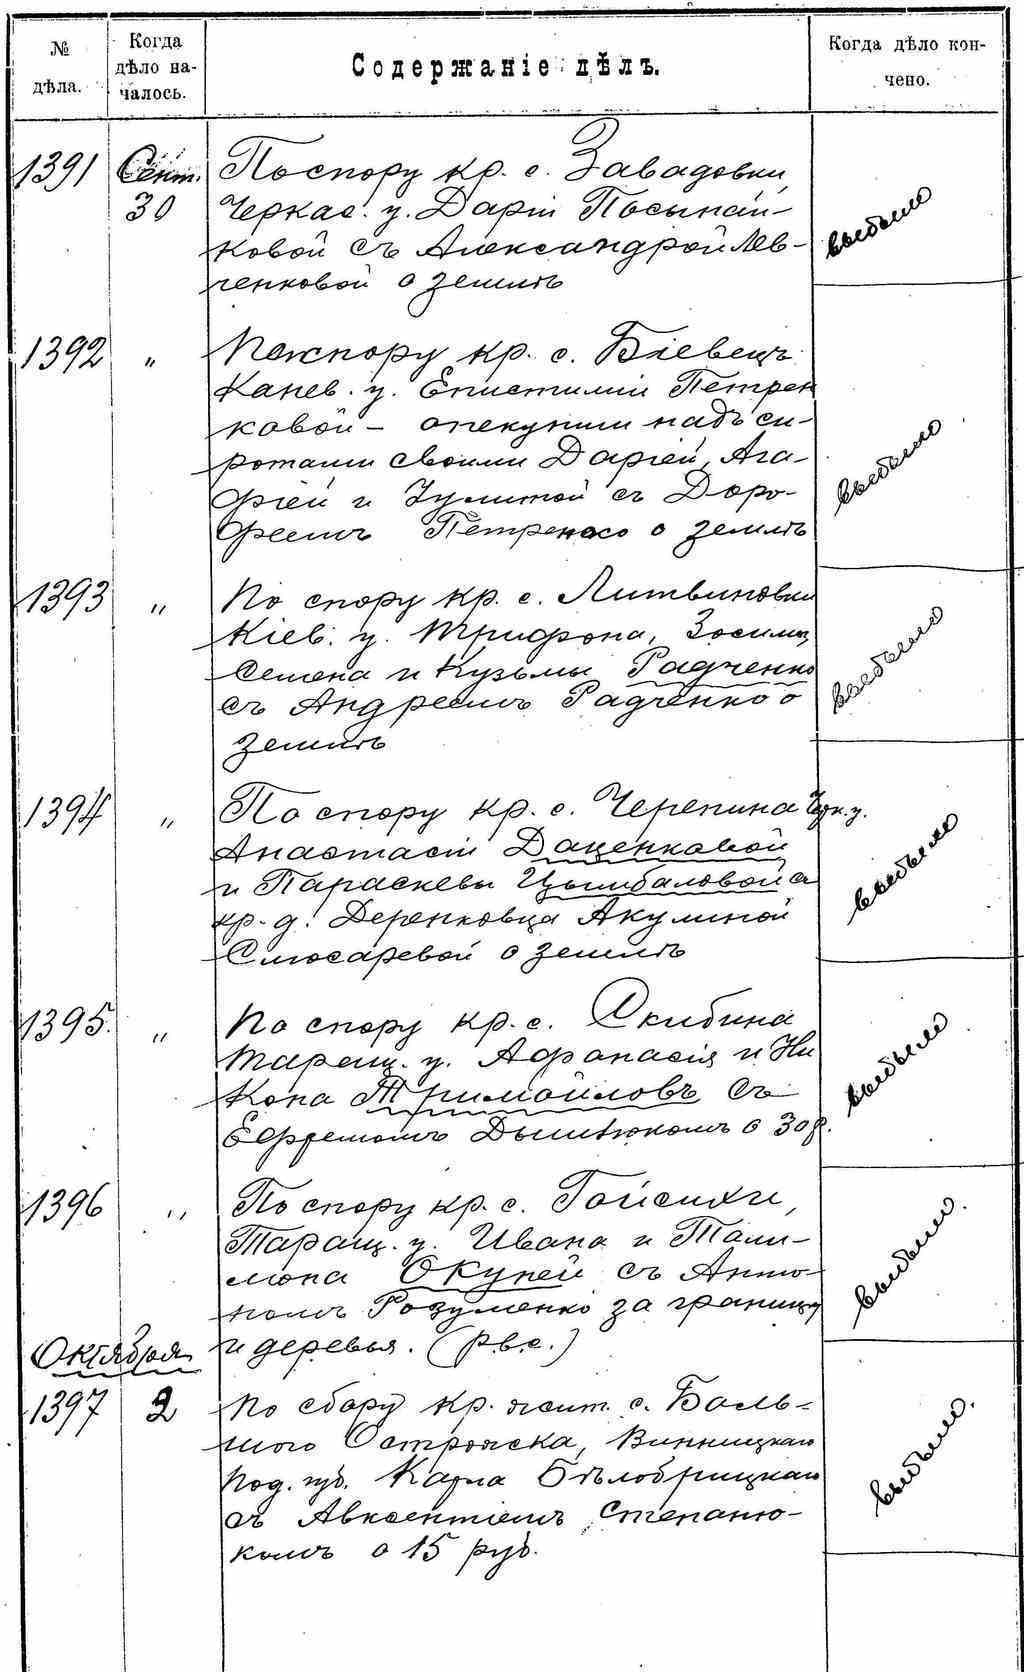 № дѣла.
Когда дѣло на-
чалось.
Содержаніе дѣлъ.
Когда дѣло кон-
чено.
1391 Сент. По спору кр. с. Завадовки,
30 Черкас. у. Даріи Посынай-
ковой съ Александрой Лев-
ченковой о землѣ
выбыло
1392 " По спору кр. с. Біевецъ
Канев. у. Епистиміи Петрен
ковой – опекунши надъ си-
ротами своими Даріей, Ага-
фіей и Іулитой съ Доро-
феемъ Петренко о землѣ
выбыло
1393 " По спору кр. с. Литвиновки
Кіев. у. Трифона, Зосимы,
Семена и Кузьмы Радченко
съ Андреемъ Радченко о
землѣ
выбыло
1394 " По спору кр. с. Черепина Черк. у.
Анастасіи Даценковой
и Параскевы Цымбаловой съ
кр. д. Деренковца Акулиной
Слюсаревой о землѣ
выбыло
1395. " По спору кр. с. Скибина
Таращ. у. Афанасія и Ни
кона Тримайловъ съ
Ефремомъ Дымнюкомъ о 30 р.
выбыло
1396 " По спору кр. с. Гойсихи,
Таращ. у. Ивана и Фили-
мона Окуней съ Анто-
номъ Розуменко за границу
и деревья. (рвс.)
выбыло.
Октября
1397 2 По сбору кр. жит. с. Боль-
шого Острожска, Винницкаго
Под. губ. Карла Бѣлобрицкаго
съ Авксентіемъ Степаню-
комъ о 15 руб.
выбыло.